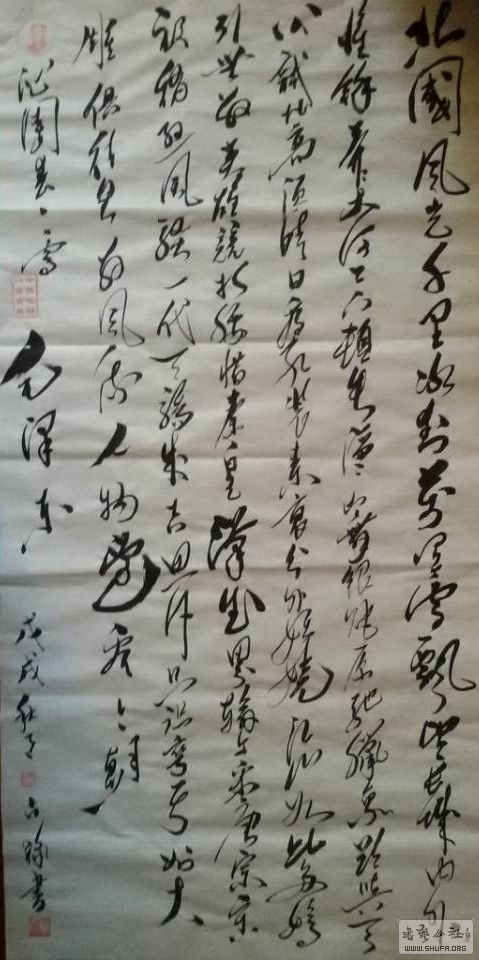 北國風光千里冰封萬里雪飄望長城内外
惟餘莽莽大河上下頓失滔滔山舞銀蛇原馳臘象欲與天
公試比高須晴日看紅裝素裹分外妖嬈江山如此多嬌
引無數英雄競折腰惜秦皇漢武略輸文采唐宗宋
祖稍遜風騷一代天驕成吉思汗只識彎弓射大
雕俱往矣數風流人物還看今朝
沁園春、雪 毛澤東 戊戌秋月 書
書藝公社
WWW.SHUFA.ORG